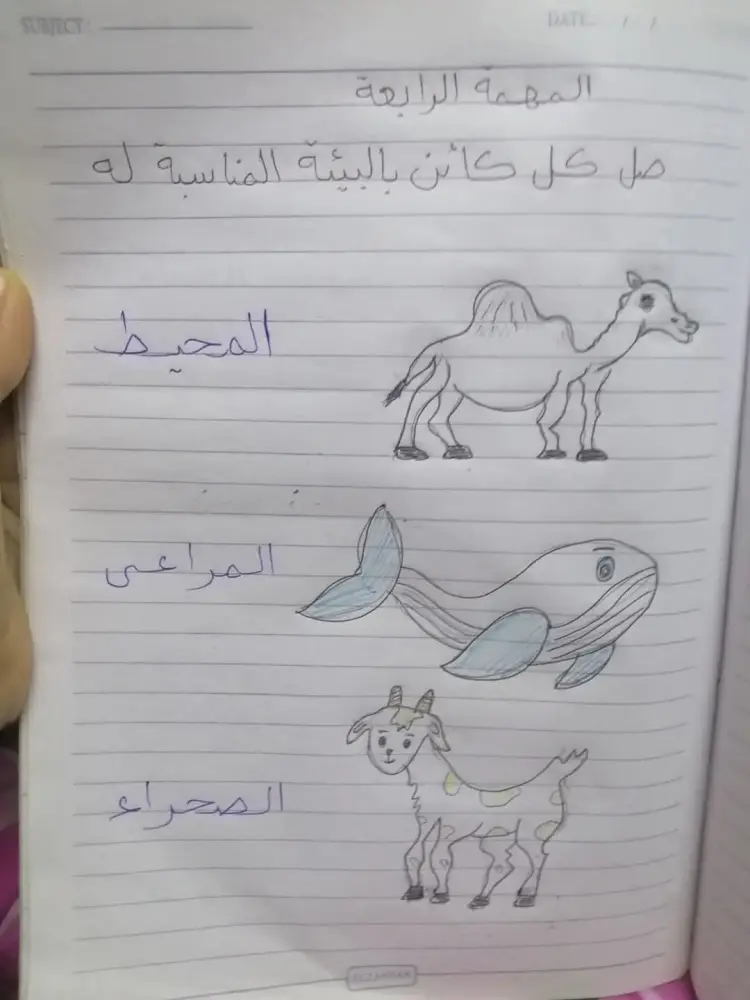 SUBJECT:
DATE: / /
المهمة الرابعة
صل كل كائن بالبيئة المناسبة له
المحيط
المراعى
الصحراء